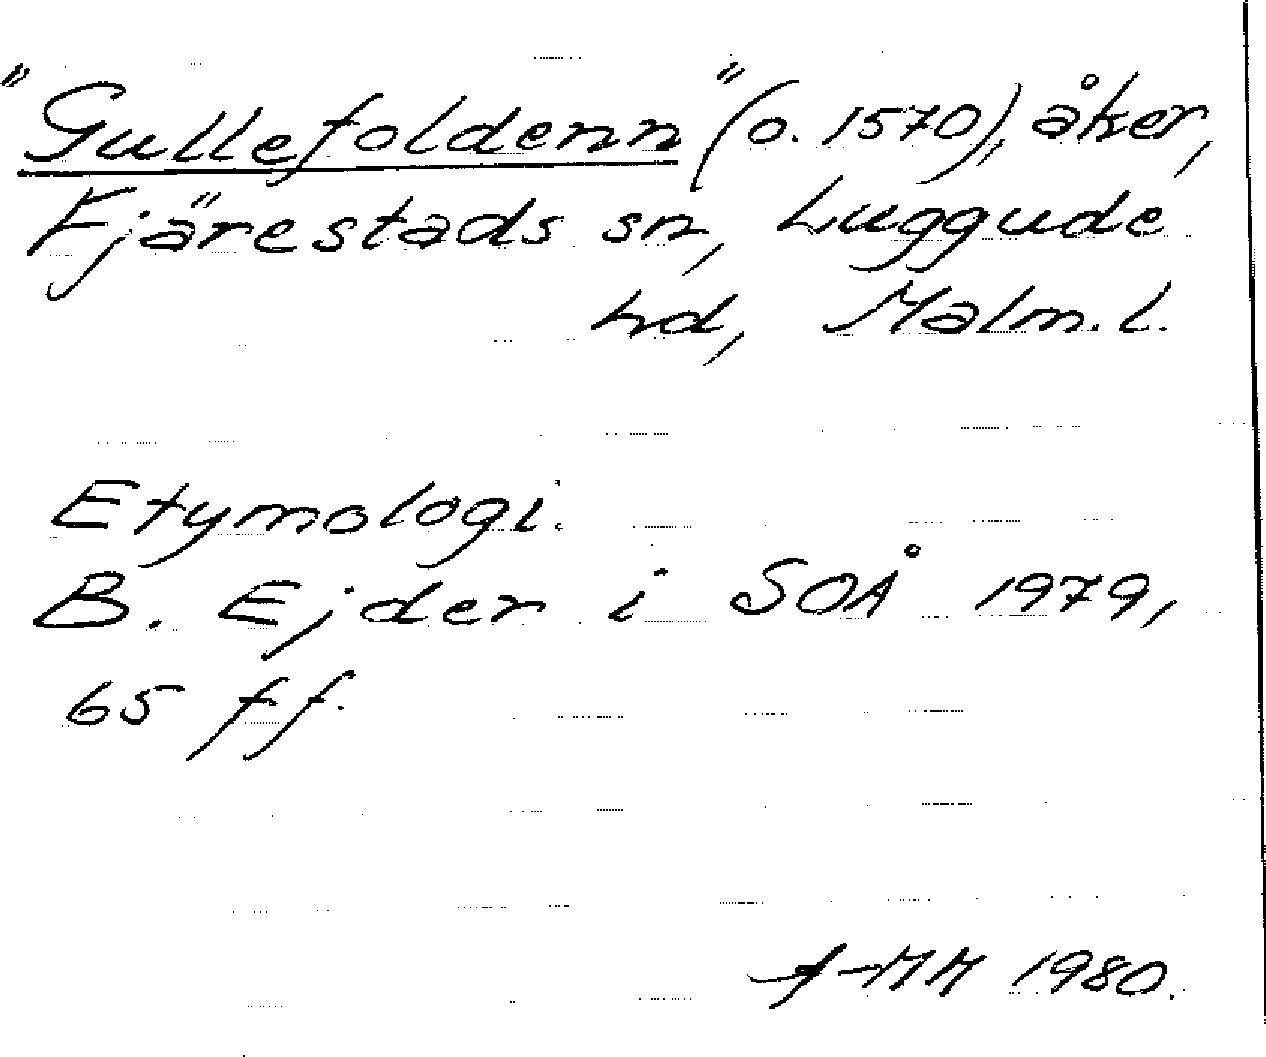 "Gullefoldenn" (o. 1570), åker,
Fjärestads sn, Luggude
hd, Malm. l.
Etymologi.
B. Ejder i SOÅ 1979,
65 ff.
A-MM 1980.